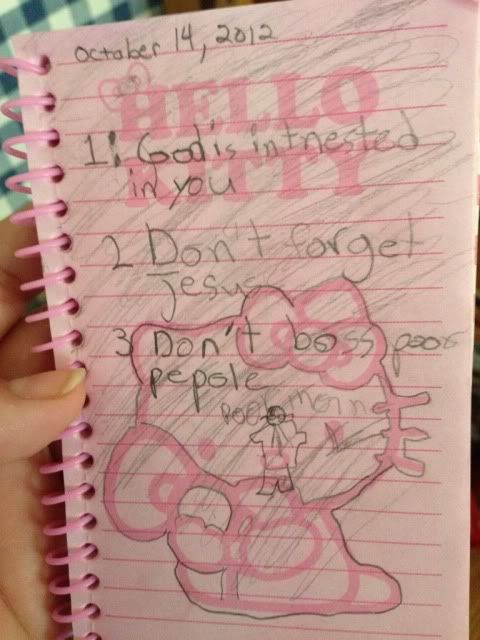 October 14, 2012
HELLO
1: God's intrested
KITTY
in you
2 Don't forget
Jesus
3 Don't boss poor
pepole
poor